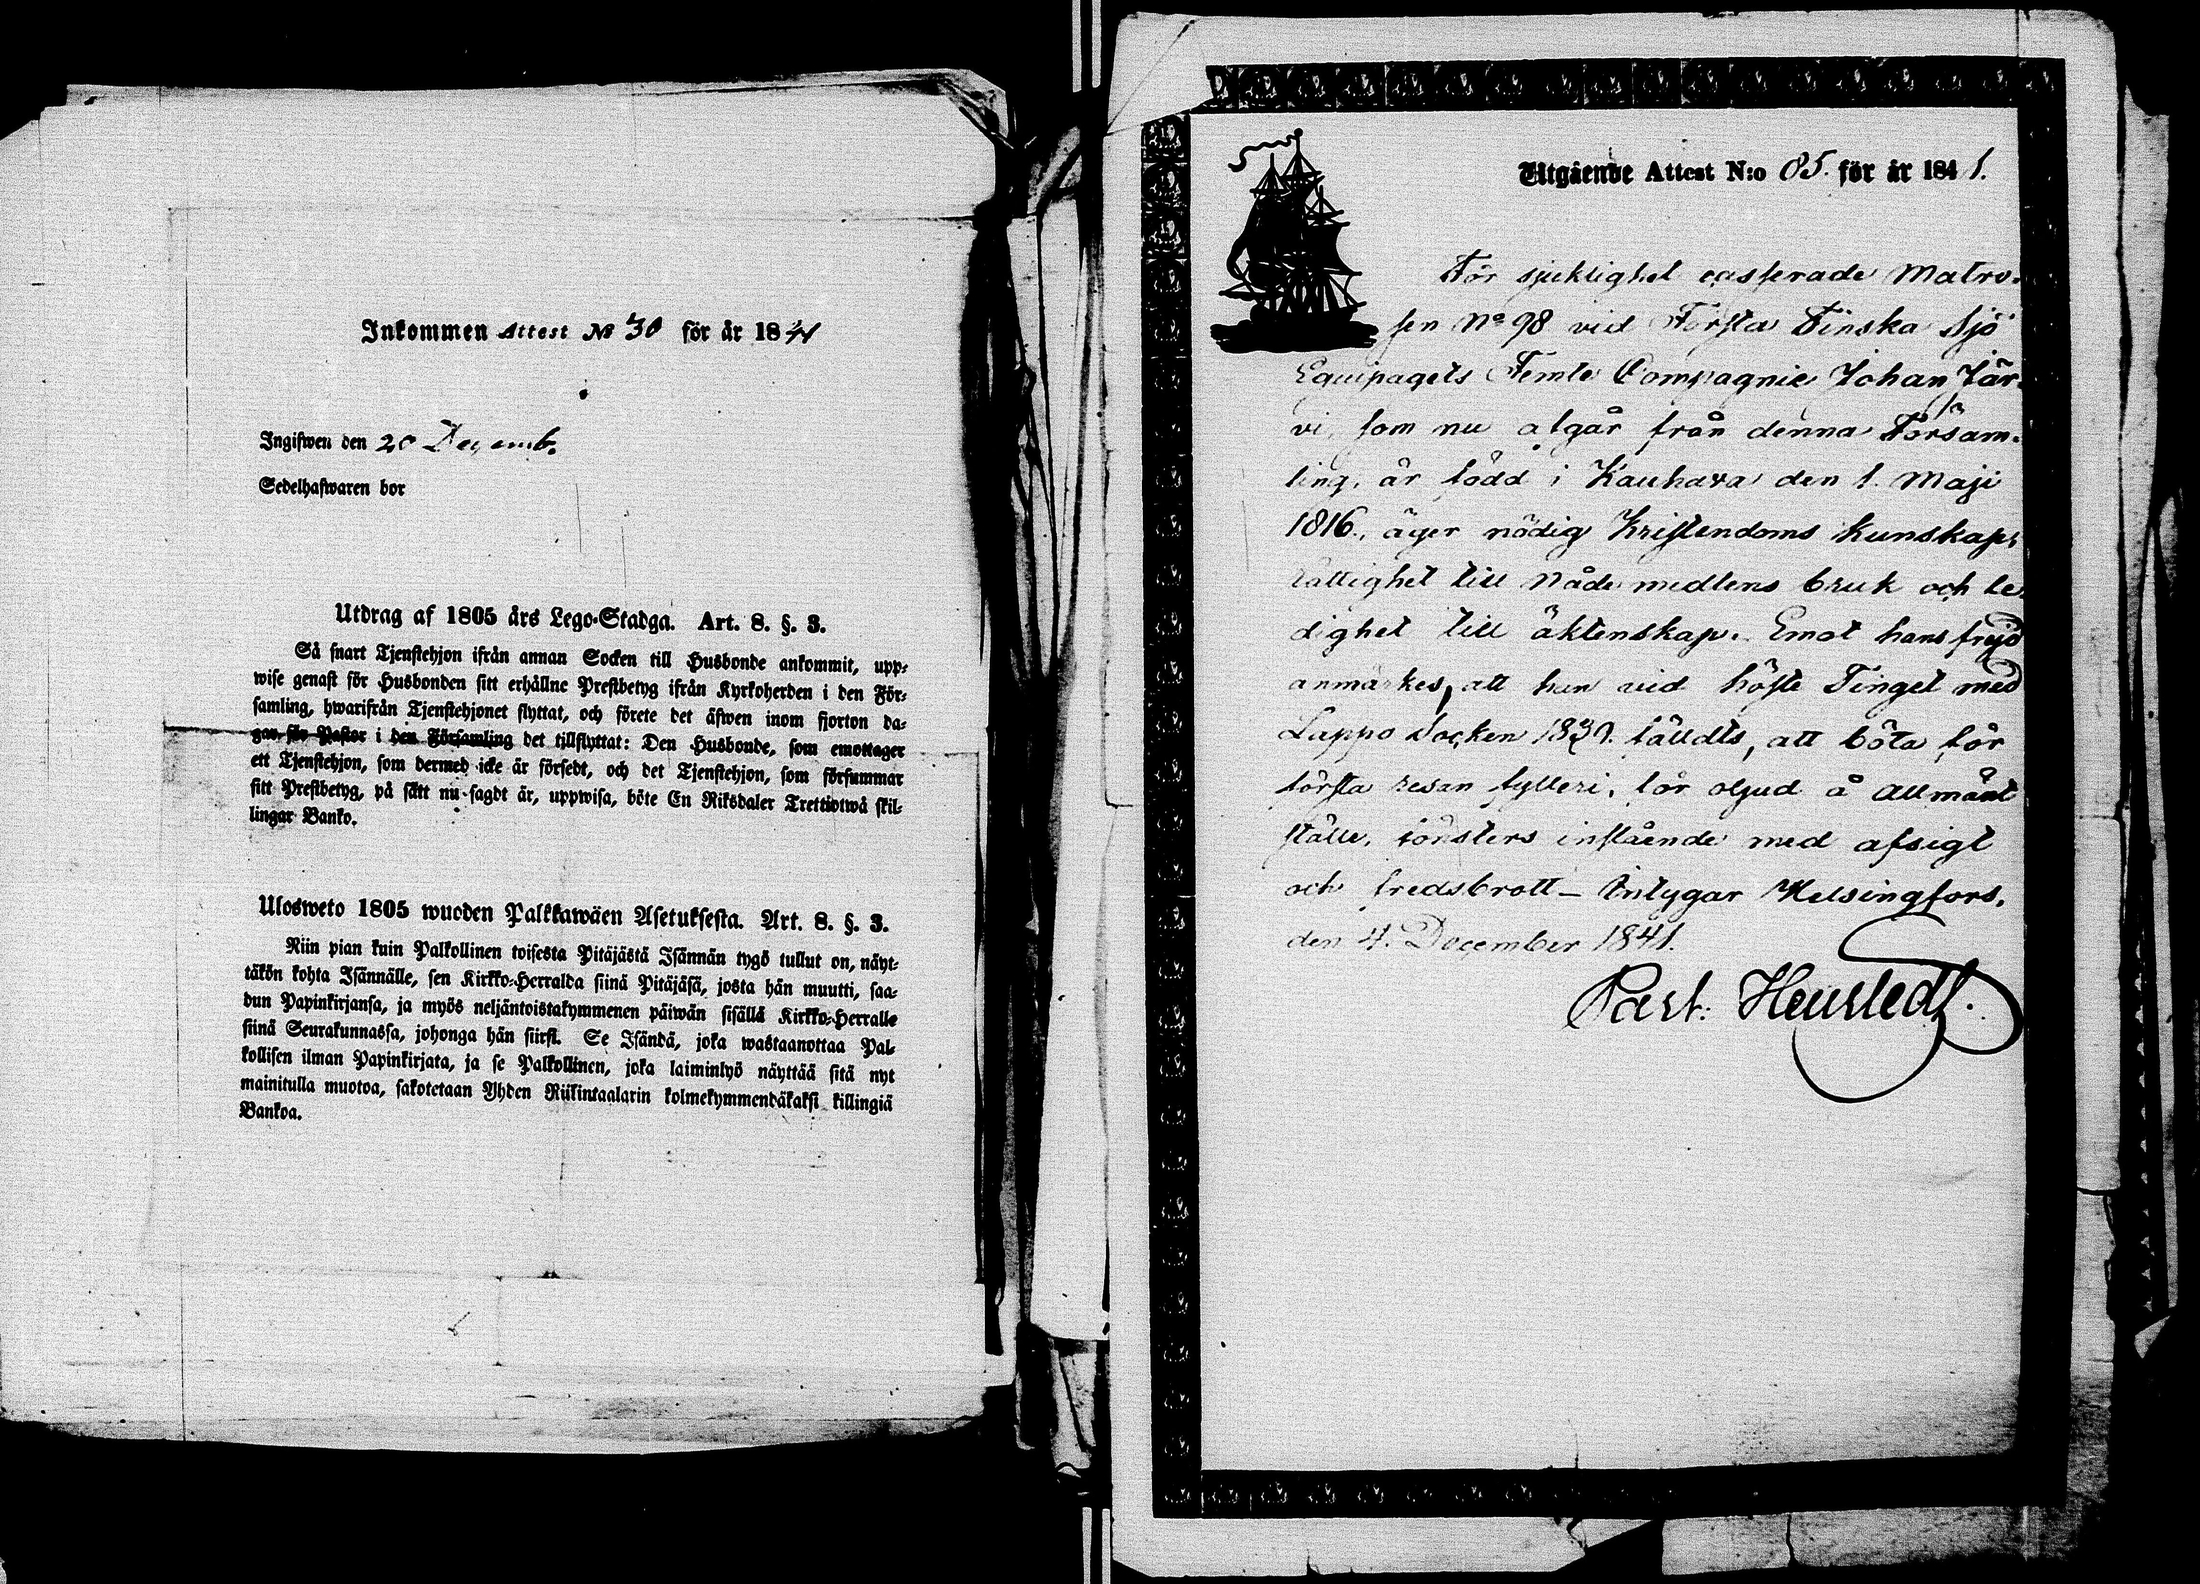 Inkommen Attest № 30 för år 1841
Ingifwen den 20 Decemb.
Sedelhafwaren bor
Utdrag af 1805 års Lego-Stadga. Art. 8. §. 3.
Så snart Tjenstehjon ifrån annan Socken till Husbonde ankommit, upp-
wise genast för Husbonden sitt erhållne Prestbetyg ifrån Kyrkoherden i den För-
samling, hwarifrån Tjenstehjonet flyttat, och förete det äfwen inom fjorton da-
gar för Pastor i den Församling det tillflyttat: Den Husbonde, som emottager
ett Tjenstehjon, som dermed icke är försedt, och det Tjenstehjon, som försummar
sitt Prestbetyg, på sätt nu sagdt är, uppwisa, böte En Riksdaler Trettiotwå skil-
lingar Banko.
Ulosweto 1805 wuoden Palkkawäen Asetuksesta. Art. 8. §. 3.
Niin pian kuin Palkollinen toisesta Pitäjästä Isännän tygö tullut on, näyt-
täkön kohta Isännälle, sen Kirkko-Herralda siinä Pitäjäsä, josta hän muutti, saa-
dun Papinkirjansa, ja myös neljäntoistakymmenen päiwän sisällä Kirkko-Herralle
siinä Seurakunnassa, johonga hän siirsi. Se Isändä, joka wastaanottaa Pal-
kollisen ilman Papinkirjata, ja se Palkollinen, joka laiminlyö näyttää sitä nyt
mainitulla muotoa, sakotetaan Yhden Riikintaalarin kolmekymmendäkaksi killingiä
Bankoa.
Utgående Attest N:o 85. för år 1841.
För sjuklighet casserade Matro-
sen No 98 vid Första Finska Sjö
Equipagets Femte Compagnie Johan Jär-
vi, som nu afgår från denna Försam-
ling, är född i Kauhava den 1. Maji
1816., äger nödig Kristendoms kunskap,
rättighet till Nådemedlens bruk och le-
dighet till äktenskap. Emot hans frejd
anmärkes, att han vid höste Tinget med
Lappo Socken 1839. fälldts, att böta för
första resan fylleri, för oljud å allmänt
ställe, fönsters inslående med afsigt
och fredsbrott – Intygar Helsingfors,
den 4. December 1841.